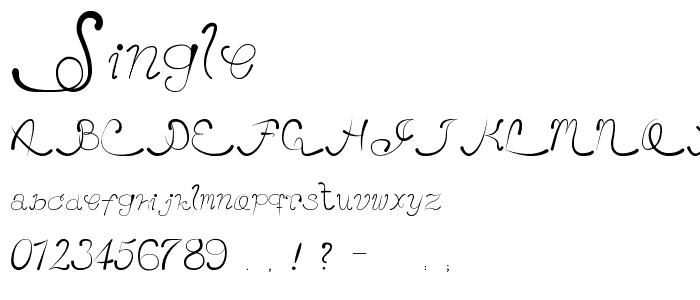 Single
ABCDEFGHIJKLMNO
abcdefghijklmnopqrstuvwxyz
0123456789 . , ! ? - : ;